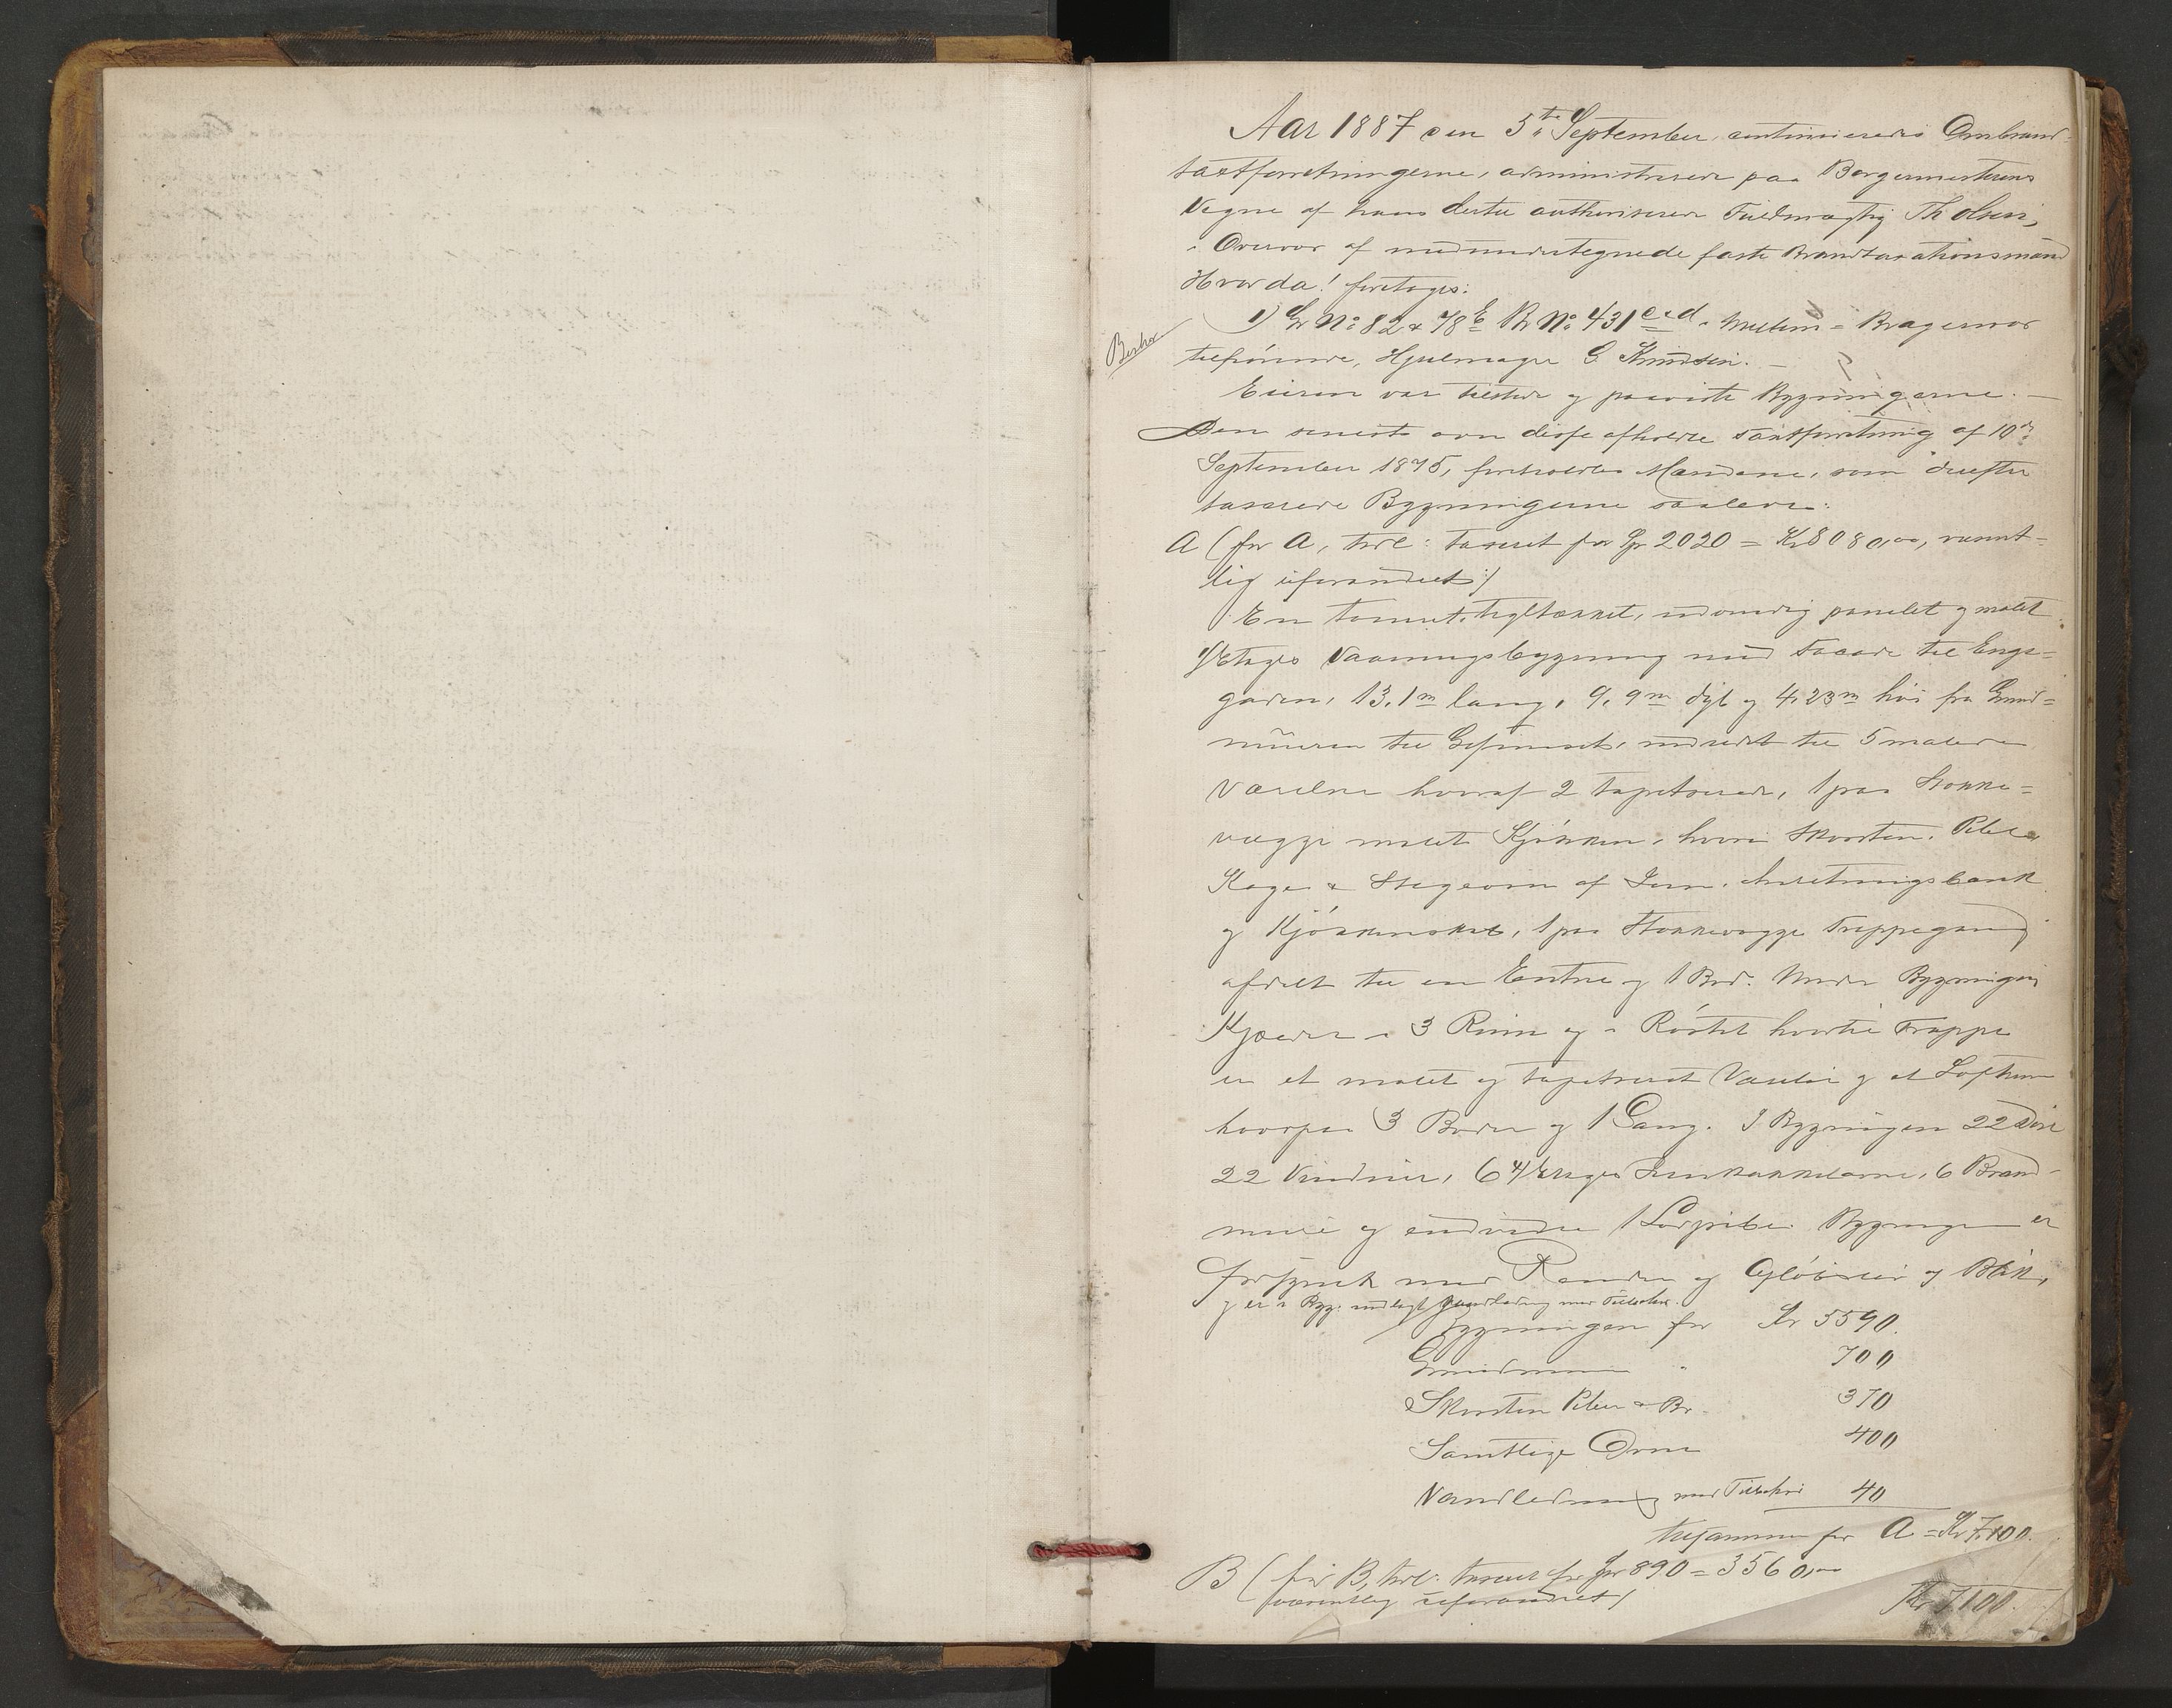 Aar 1887 den 5te September, continueredes Ombrand-
taxtforretningerne, administrerede paa Borgermesterens
Vegne af hans dertil authoriserede Fuldmægtig Th Olsen,
i Overvær af medundertegnede faste Brandtaxationsmænd
Hvorda! foretoges:
1) Gr No 82 & 78E Br No 431 c & d. Mellem-Bragernæs
tilhørende, Hjulmager G Knudsen. —
Besker
Eieren var tilstede og paaviste Bygningerne. —
Den seneste over disse afholdte Taxtforretning af 10de
September 1875, foreholdtes Mændene, som derefter
taxerede Bygningerne saaledes:
A (før A, tvrl: taxeret for Sp 2020 = Kr 8080,00, væsent-
lig uforandret)
En tømret, tegltækket, udvendig panelet og malet
1 Etages Vaaningsbygning med Facade til Enge-
gaden, 13,1m lang, 9,9m dyb og 4,23m høi fra Grund-
muren til Gesimset, indredet til 5 malede
Værelser hvoraf 2 tapetserede, 1 paa Stokke-
vægge malet Kjøkken, hvori Skorsten, Piber
Koge & Stegeovn af Jern, Anretningsbænk
og Kjøkkenskab, 1 paa Stokkevægge Trappegang
afdelt til en Entre og 1 Bod. Under Bygningen
Kjælder i 3 Rum og i Røstet hvortil Trappe
er et malet og tapetseret Værelse og et Loftrum
hvorpaa 3 Boder og 1 Gang. I Bygningen 22 Døre
22 Vinduer, 6 4 Etages Jernkakkelovne, 6 Brand-
mure og endvidere 1 Lodpibe. Bygningen er
forsynet med Render og Afløbsrør og Blik,
og er i Bygn: indlagt Vandledning med Tilbehør.
Bygningen for Kr 5590.
Grundmuren " 700
Skorsten Piber & Br. 370
Samtlige Ovne 400
Vandledning med Tilbehør 40
tilsammen for A = Kr 7,100.
B (før B, tvrl: taxeret for Sp 890 = 3560,00
væsentlig uforandret)
Kr 7,100.